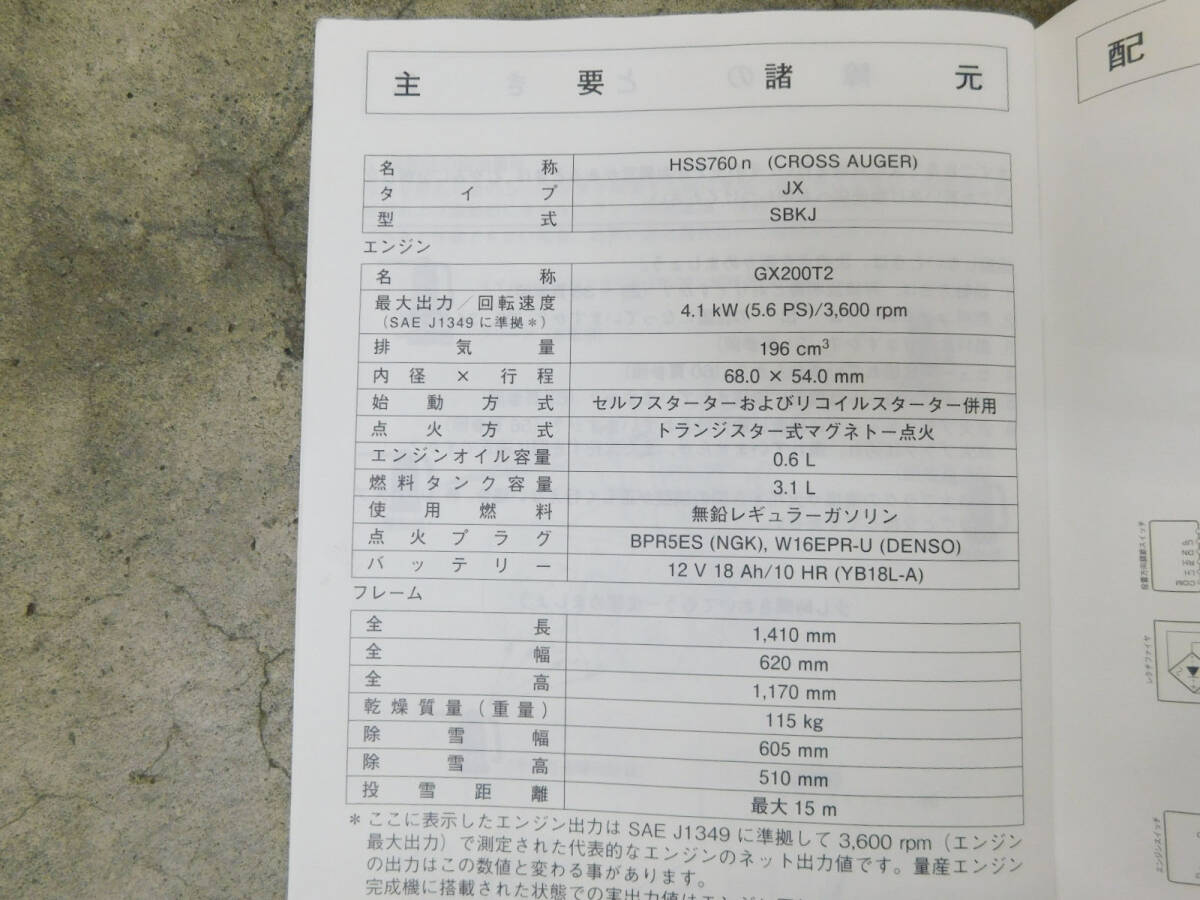 主要諸元
名称 HSS760n (CROSS AUGER)
タイプ JX
型式 SBKJ
エンジン
名称 GX200T2
最大出力／回転速度 4.1 kW (5.6 PS)/3,600 rpm
(SAE J1349に準拠＊)
排気量 196 cm³
内径×行程 68.0 × 54.0 mm
始動方式 セルフスターターおよびリコイルスターター併用
点火方式 トランジスター式マグネトー点火
エンジンオイル容量 0.6 L
燃料タンク容量 3.1 L
使用燃料 無鉛レギュラーガソリン
点火プラグ BPR5ES (NGK), W16EPR-U (DENSO)
バッテリー 12 V 18 Ah/10 HR (YB18L-A)
フレーム
全長 1,410 mm
全幅 620 mm
全高 1,170 mm
乾燥質量(重量) 115 kg
除雪幅 605 mm
除雪高 510 mm
投雪距離 最大 15 m
＊ここに表示したエンジン出力は SAE J1349 に準拠して 3,600 rpm（エンジン
最大出力）で測定された代表的なエンジンのネット出力値です。量産エンジン
の出力はこの数値と変わる事があります。
完成機に搭載された状態での実出力値はエンジン
配
投雪方向調節スイッチ
COM
レクチファイヤ
エンジンスイッチ